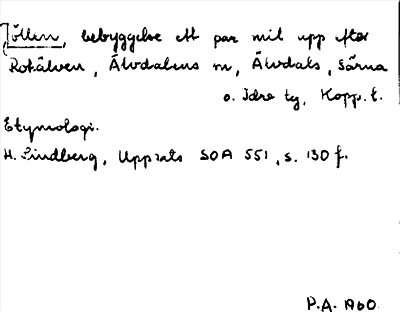 Öllen, bebyggelse ett par mil upp efter
Rotälven, Älvdalens sn, Älvdals, Särna
o. Idre tg, Kopp. l.
Etymologi.
H. Lindberg, Uppsats SOA 551, s. 130 f.
P.A. 1960